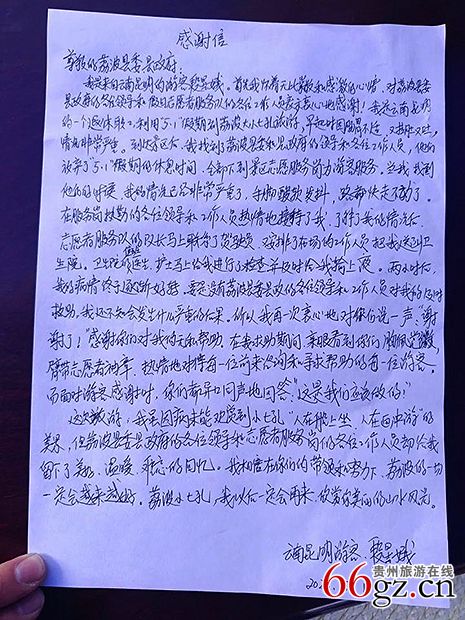 感谢信
尊敬的荔波县委县政府:
我是来自云南昆明的游客黎星娥。首先我怀着无比崇敬和感激的心情,对荔波县委
县政府的各位领导和假日志愿者服务队的各位工作人员表示衷心地感谢!我是云南昆明
的一个退休职工,利用“五.1”假期到荔波大小七孔旅游,早起时因肠胃不适,又拉肚又吐,
情况非常严重。到达景区后,我找到了荔波县委和县政府的领导和工作人员,他们
放弃了“5.1”假期的休息时间,全部下到景区志愿服务岗为游客服务。当我找到
他们的时候,我的情况已经非常严重了,手脚酸软发抖,路都快走不动了。
在服务岗执勤的各位领导和工作人员热情地接待了我,了解了我的情况后,
志愿者服务队的队长马上联系了驾驶员,安排了在场的工作人员把我送到卫
生院。卫生院的医生、护士马上给我进行了检查并及时给我输上液。两小时后,
我的病情终于逐渐好转,要不是有荔波县委县政府的各位领导和工作人员对我的及时
救助,我还不知会发生什么严重的后果。所以我再一次衷心地对你们说一声:谢
谢了!感谢你们对我的关心和帮助。在我求助期间,亲眼看到你们
臂带志愿者袖章,热情地对待每一位前来咨询和寻求帮助的每一位游客。
而面对游客感谢时,你们都异口同声地回答:“这是我们应该做的!”
这次旅游,我虽因病未能欣赏到小七孔“人在水上坐,人在画中游”的
美景,但荔波县委县政府的各位领导和志愿者服务岗的各位工作人员却给我
留下了美好、温暖、难忘的回忆。我相信在你们的带领和努力下,荔波的一切
一定会越来越好。荔波小七孔,我以后一定会再来欣赏你美丽的山水风光。
云南昆明游客:黎星娥
20
贵州旅游在线
66gz.cn